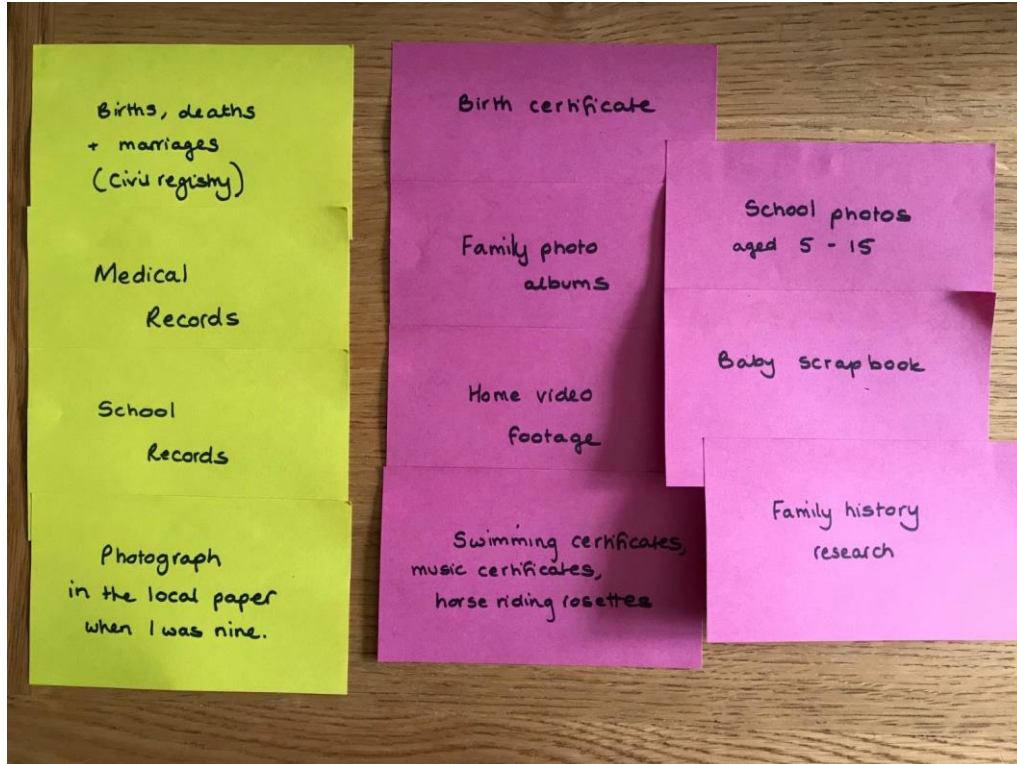 Births, deaths
+ marriages
(Civil registry)
Medical
Records
School
Records
Photograph
in the local paper
when I was nine.
Birth certificate
Family photo
albums
Home video
footage
Swimming certificates,
music certificates,
horse riding rosettes
School photos
aged 5 - 15
Baby scrapbook
Family history
research